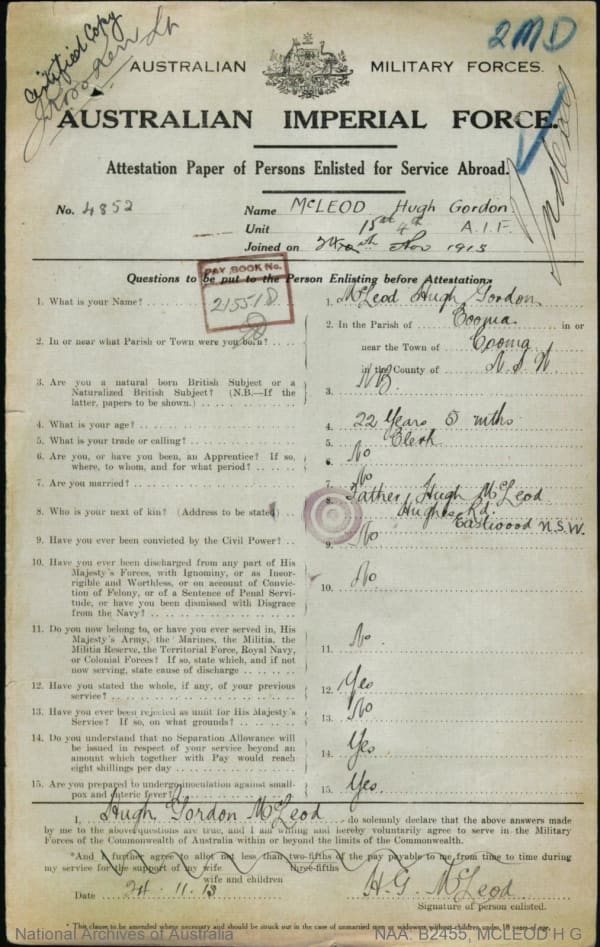 Certified Copy
2MD
AUSTRALIAN MILITARY FORCES.
AUSTRALIAN IMPERIAL FORCE.
Attestation Paper of Persons Enlisted for Service Abroad.
No. 4852 Name McLEOD Hugh Gordon
Unit 15th A.I.F.
Joined on Nov 1915
PAY BOOK No.
21551
Questions to be put to the Person Enlisting before Attestation.
1. What is your Name? 1. McLeod Hugh Gordon
2. In or near what Parish or Town were you born? 2. In the Parish of Cooma in or
near the Town of Cooma
in the County of N.S.W
3. Are you a natural born British Subject or a
Naturalized British Subject? (N.B.—If the
latter, papers to be shown.) 3.
4. What is your age? 4. 22 Years 5 mths
5. What is your trade or calling? 5. Clerk
6. Are you, or have you been, an Apprentice? If so,
where, to whom, and for what period? 6. No
7. Are you married? 7. No
8. Who is your next of kin? (Address to be stated) 8. Father, Hugh McLeod
Hughes Rd.
Eastwood N.S.W.
9. Have you ever been convicted by the Civil Power? 9. No
10. Have you ever been discharged from any part of His
Majesty's Forces, with Ignominy, or as Incor-
rigible and Worthless, or on account of Convic-
tion of Felony, or of a Sentence of Penal Servi-
tude, or have you been dismissed with Disgrace
from the Navy? 10. No
11. Do you now belong to, or have you ever served in, His
Majesty's Army, the Marines, the Militia, the
Militia Reserve, the Territorial Force, Royal Navy,
or Colonial Forces? If so, state which, and if not
now serving, state cause of discharge 11. No
12. Have you stated the whole, if any, of your previous
service? 12. Yes
13. Have you ever been rejected as unfit for His Majesty's
Service? If so, on what grounds? 13. No
14. Do you understand that no Separation Allowance will
be issued in respect of your service beyond an
amount which together with Pay would reach
eight shillings per day 14. Yes
15. Are you prepared to undergo inoculation against small-
pox and enteric fever? 15. Yes.
I, Hugh Gordon McLeod do solemnly declare that the above answers made
by me to the above questions are true, and I am willing and hereby voluntarily agree to serve in the Military
Forces of the Commonwealth of Australia within or beyond the limits of the Commonwealth.
*And I further agree to allot not less than two-fifths of the pay payable to me from time to time during
three-fifths
my service for the support of my wife
wife and children
Date 24.11.15 H.G. McLeod
Signature of person enlisted.
* This clause to be amended where necessary and should be struck out in the case of unmarried men or widowers without children under 18 years of age.
National Archives of Australia NAA: B2455, MCLEOD H G